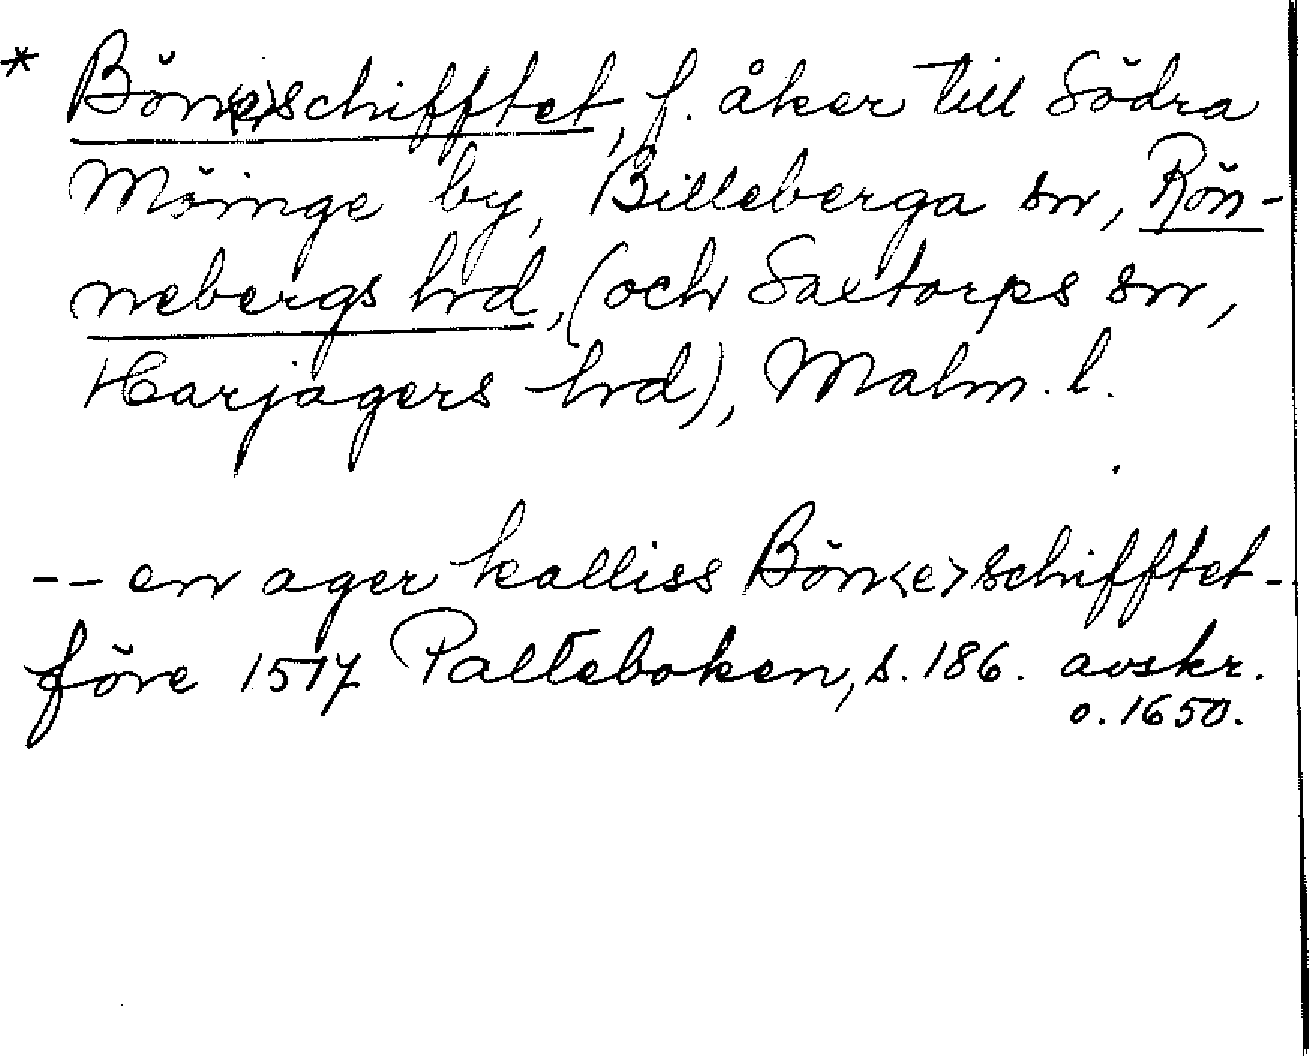 * Bön<e>schifftet, f. åker till Södra
Möinge by, Billeberga sn, Rön-
nebergs hrd, (och Saxtorps sn,
Harjagers hrd), Malm. l.
-- en ager kalliss Bön<e>schifftet -
före 1517 Palteboken, s. 186. avskr.
o. 1650.